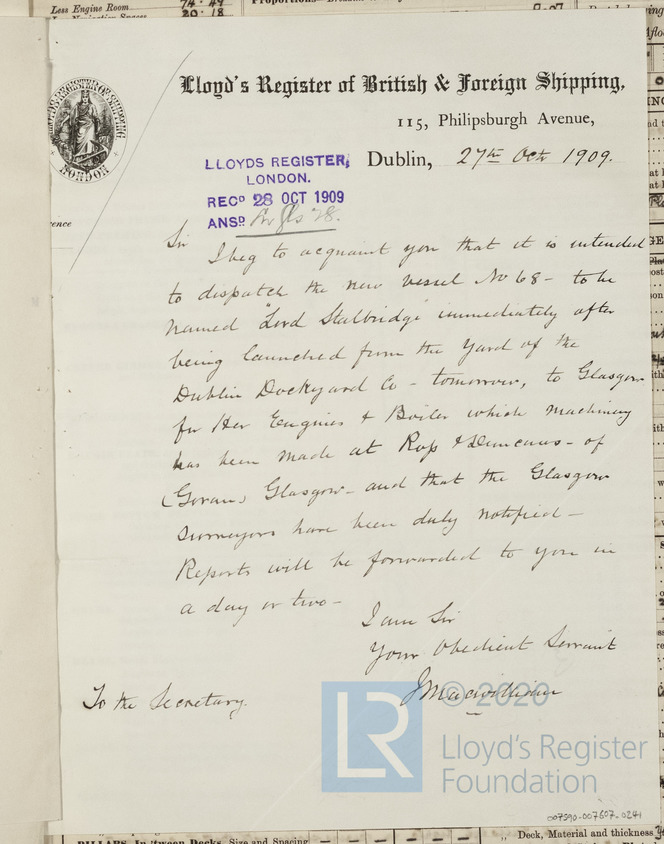 Less Engine Room
74.49
20.18
Lloyd's Register of British & Foreign Shipping,
115, Philipsburgh Avenue,
Dublin, 27th Oct 1909.
LLOYDS REGISTER,
LONDON.
RECD 28 OCT 1909
ANSD
LONDON
Sir I beg to acquaint you that it is intended
to dispatch the new vessel No 68 - to be
named "Lord Stalbridge" immediately after
being launched from the Yard of the
Dublin Dockyard Co - tomorrow, to Glasgow
for Her Engines & Boiler which machinery
has been made at Ross & Duncans - of
(Govan) Glasgow - and that the Glasgow
Surveyors have been duly notified -
Reports will be forwarded to you in
a day or two -
I am Sir
Your Obedient Servant
J Macwilliam
To the Secretary.
© 2020
LR
Lloyd's Register
Foundation
007590-007607-0241
PILLARS, In 'tween Decks, Size and Spacing
" Deck, Material and thickness